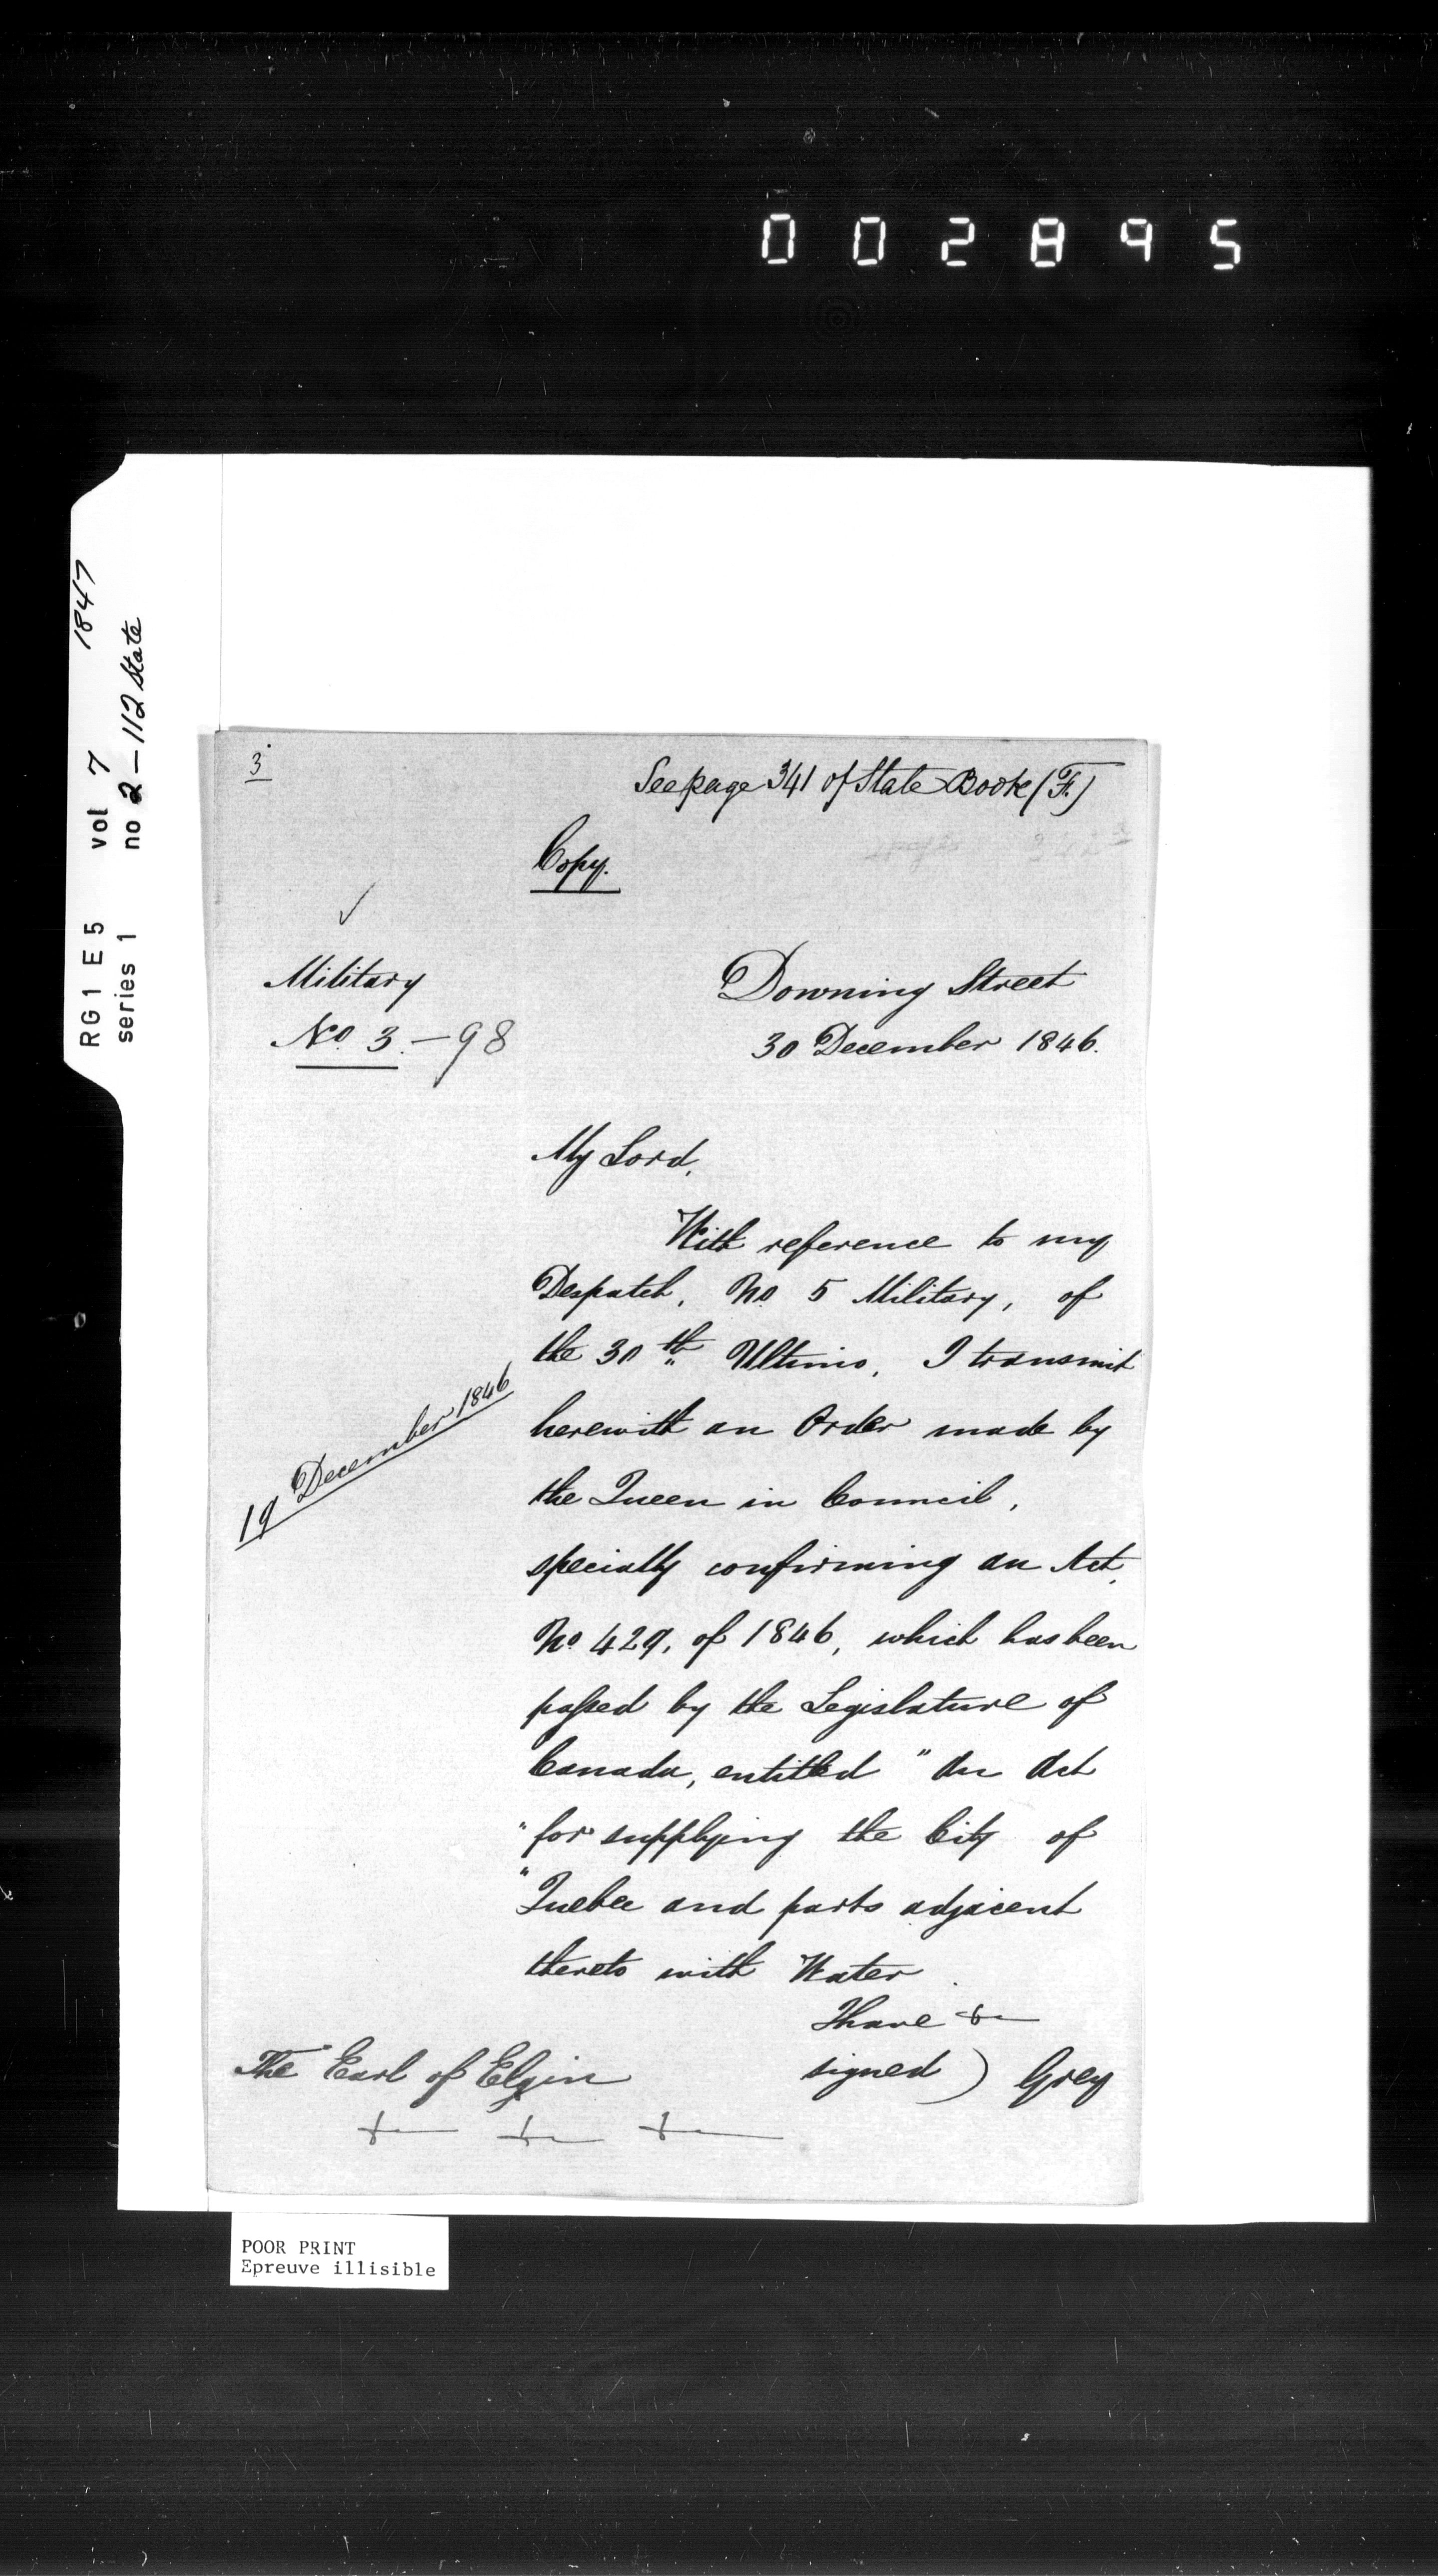 002895
RG1 E5 vol 7 1847
series 1 no 2-112 State
3
See page 341 of State Book (F.)
Copy.
Military
No. 3. - 98
Downing Street
30 December 1846.
My Lord,
With reference to my
Despatch, No 5 Military, of
the 30th Ultimo, I transmit
19 December 1846
herewith an Order made by
the Queen in Council,
specially confirming an Act,
No 429, of 1846, which has been
passed by the Legislature of
Canada, entitled "An Act
"for supplying the City of
"Quebec and parts adjacent
thereto with Water.
I have &c
signed) Grey
The Earl of Elgin
&c &c &c
POOR PRINT
Epreuve illisible